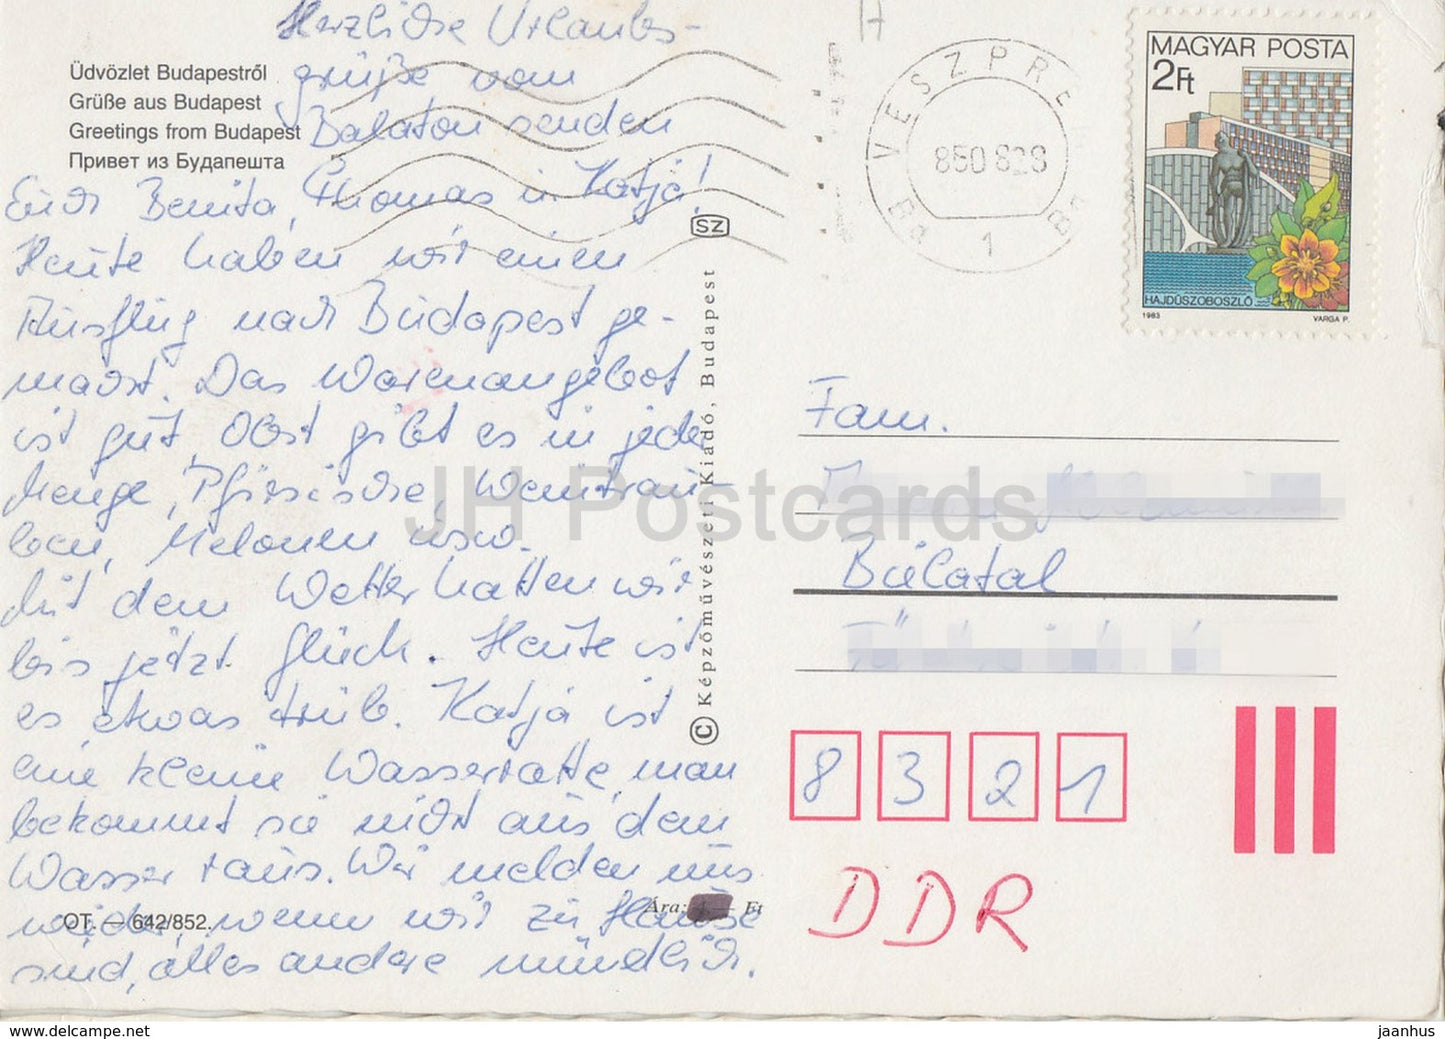 Herzliche Urlaubs-
grüße vom
Balaton senden
Euch Benita, Thomas u. Katja!
Heute haben wir einen
Ausflug nach Budapest ge-
macht. Das Warenangebot
ist gut, Obst gibt es in jeder
Menge, Pfirsische, Weintrau-
ben, Melonen usw.
Mit dem Wetter hatten wir
bis jetzt Glück. Heute ist
es etwas trüb. Katja ist
eine kleine Wasserratte, man
bekommt sie nicht aus dem
Wasser raus. Wir melden uns
wieder, wenn wir zu Hause
sind, alles andere mündlich.
Üdvözlet Budapestről
Grüße aus Budapest
Greetings from Budapest
Привет из Будапешта
SZ
© Képzőművészeti Kiadó, Budapest
OT. — 642/852.
Ára: — Ft
VESZPRÉ
850828
1
MAGYAR POSTA
2Ft
HAJDÚSZOBOSZLÓ
1983 VARGA P.
Fam.
8321
DDR
JH Postcards
jaanhus - www.delcampe.net